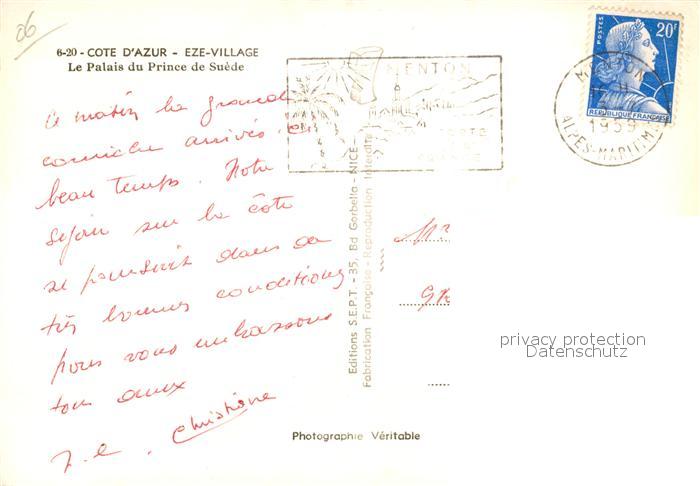 06
6-20 - COTE D'AZUR - EZE-VILLAGE
Le Palais du Prince de Suède
Ce matin la grande
corniche arrivés.
beau temps. Notre
séjour sur la côte
se poursuit dans de
très bonnes conditions
nous vous embrassons
tous deux
Christiane
Editions S.E.P.T. - 35, Bd Gorbella - NICE
Fabrication Française - Reproduction Interdite
Photographie Véritable
MENTON
POSTES
20F
REPUBLIQUE FRANÇAISE
MENTON
1959
ALPES-MARITIMES
privacy protection
Datenschutz